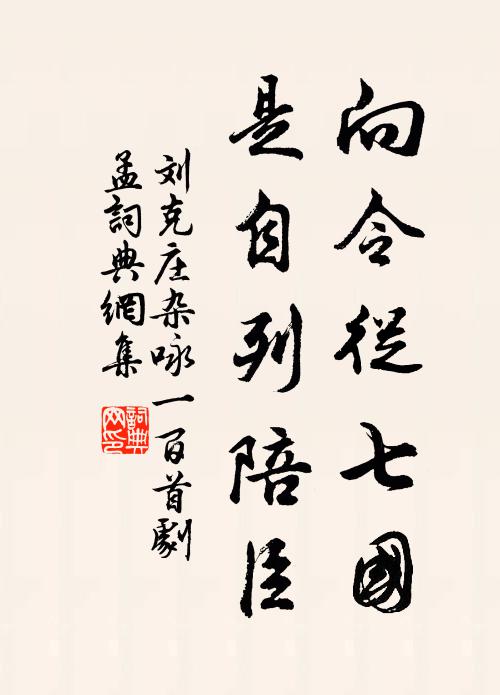 向令從七國
是自列陪臣
刘克庄杂咏一百首劇
孟詞典網集
詞典
网印